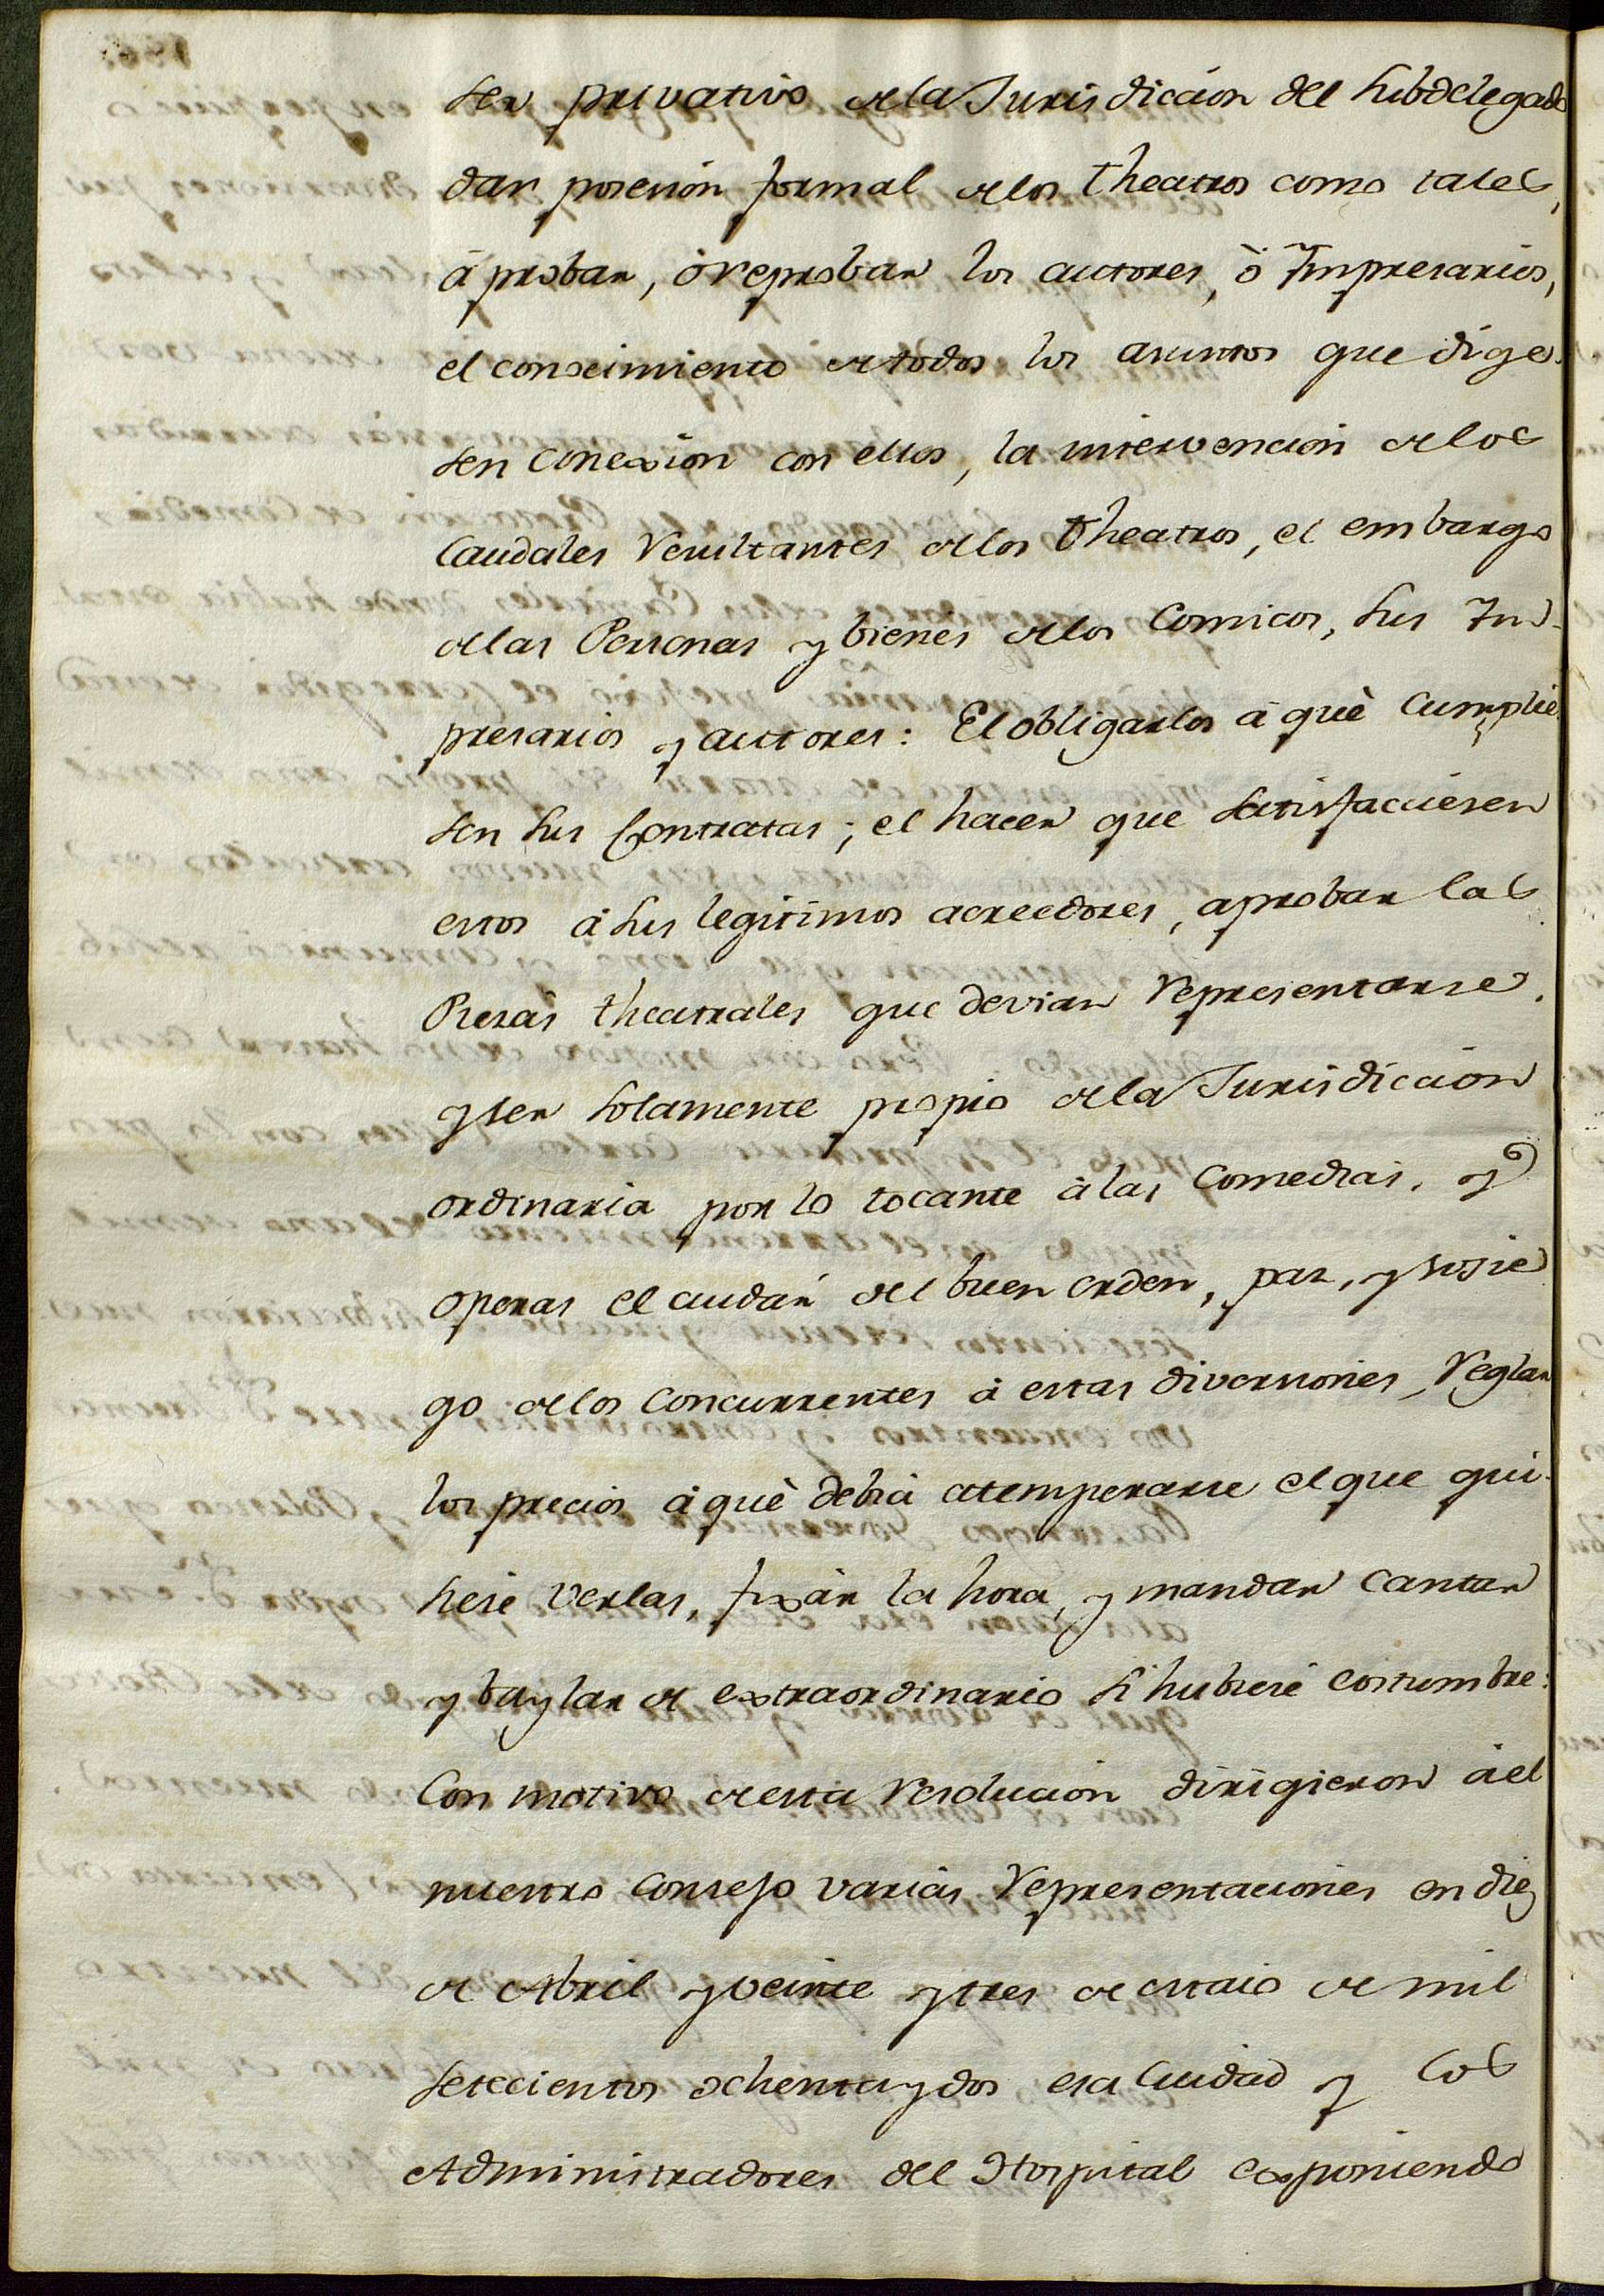 ser privativo de la Jurisdiccion del Subdelegado
dar posesión formal de los theatros como tales,
á probar, ó reprobar los autores, ò Impresarios,
el conocimiento de todos los asuntos que dige-
sen conexîon con ellos, la intervencion de los
Caudales resultantes de los theatros, el embargo
de las Personas y bienes de los Comicos, sus Im-
presarios y autores: El obligarlos á què cumplie-
sen sus Contratas; el hacer que satisfacciesen
estos á sus legitimos acreedores, aprobar las
Piezas theatrales que devian representarse,
y ser solamente propio de la Jurisdiccion
ordinaria por lo tocante á las Comedias, y
operas el cuidár del buen orden, paz, y sosie-
go de los concurrentes á estas diversiones, reglar
los precios á què debia atemperarse el que qui-
siese verlas, fixár la hora, y mandar cantar
y baylar de extraordinario si hubiese costumbre:
Con motivo de esta resolucion dirigieron áel
nuestro Consejo varias representaciones en diez
de Abril y veinte y tres de Maio de mil
setecientos ochenta y dos esa Ciudad y los
Administradores del Hospital exponiendo